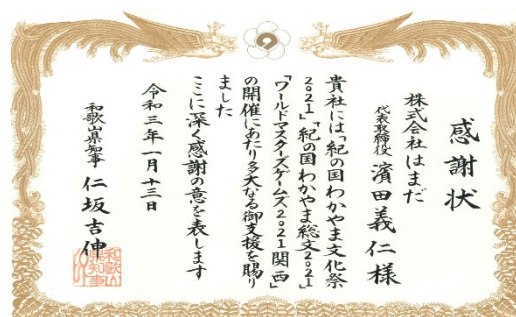 感謝状
株式会社はまだ
代表取締役 濱田義仁様
貴社には「紀の国わかやま文化祭
2021」「紀の国わかやま総文2021」
「ワールドマスターズゲームズ2021関西」
の開催にあたり多大なる御支援を賜り
ました
ここに深く感謝の意を表します
令和三年一月十三日
和歌山県知事 仁坂吉伸